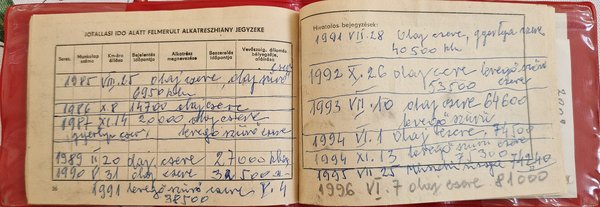 JÓTÁLLÁSI IDŐ ALATT FELMERÜLT ALKATRÉSZHIÁNY JEGYZÉKE
Sorsz. Munkalap száma Km-óra állása Bejelentés időpontja Alkatrész megnevezése Beszerelés időpontja Vevőszolg. állomás bélyegzője, aláírása
csere
1985 VII. 25 olaj csere, olaj szűrő
6950 km
1986 X 8 14700 olaj csere
1987 XI. 14 20000 olaj csere
(gyertya csere) levegő szűrő csere
1989 II 20 olaj csere 27000
1990 V 31 olaj csere 32500
1991 levegő szűrő csere V. 4
38500
36
Hivatalos bejegyzések:
1991 VII. 28 olaj csere, gyertya csere
40500 km
1992 X. 26 olaj csere levegő szűrő
53500 csere
1993 VII. 10 olaj csere 64600
levegő szűrő
1994 VI. 1 olaj csere, 74500
levegő szűrő csere
1994 XI. 13 7
1995 VII 25 78240
1996 VI. 7 olaj csere 81000